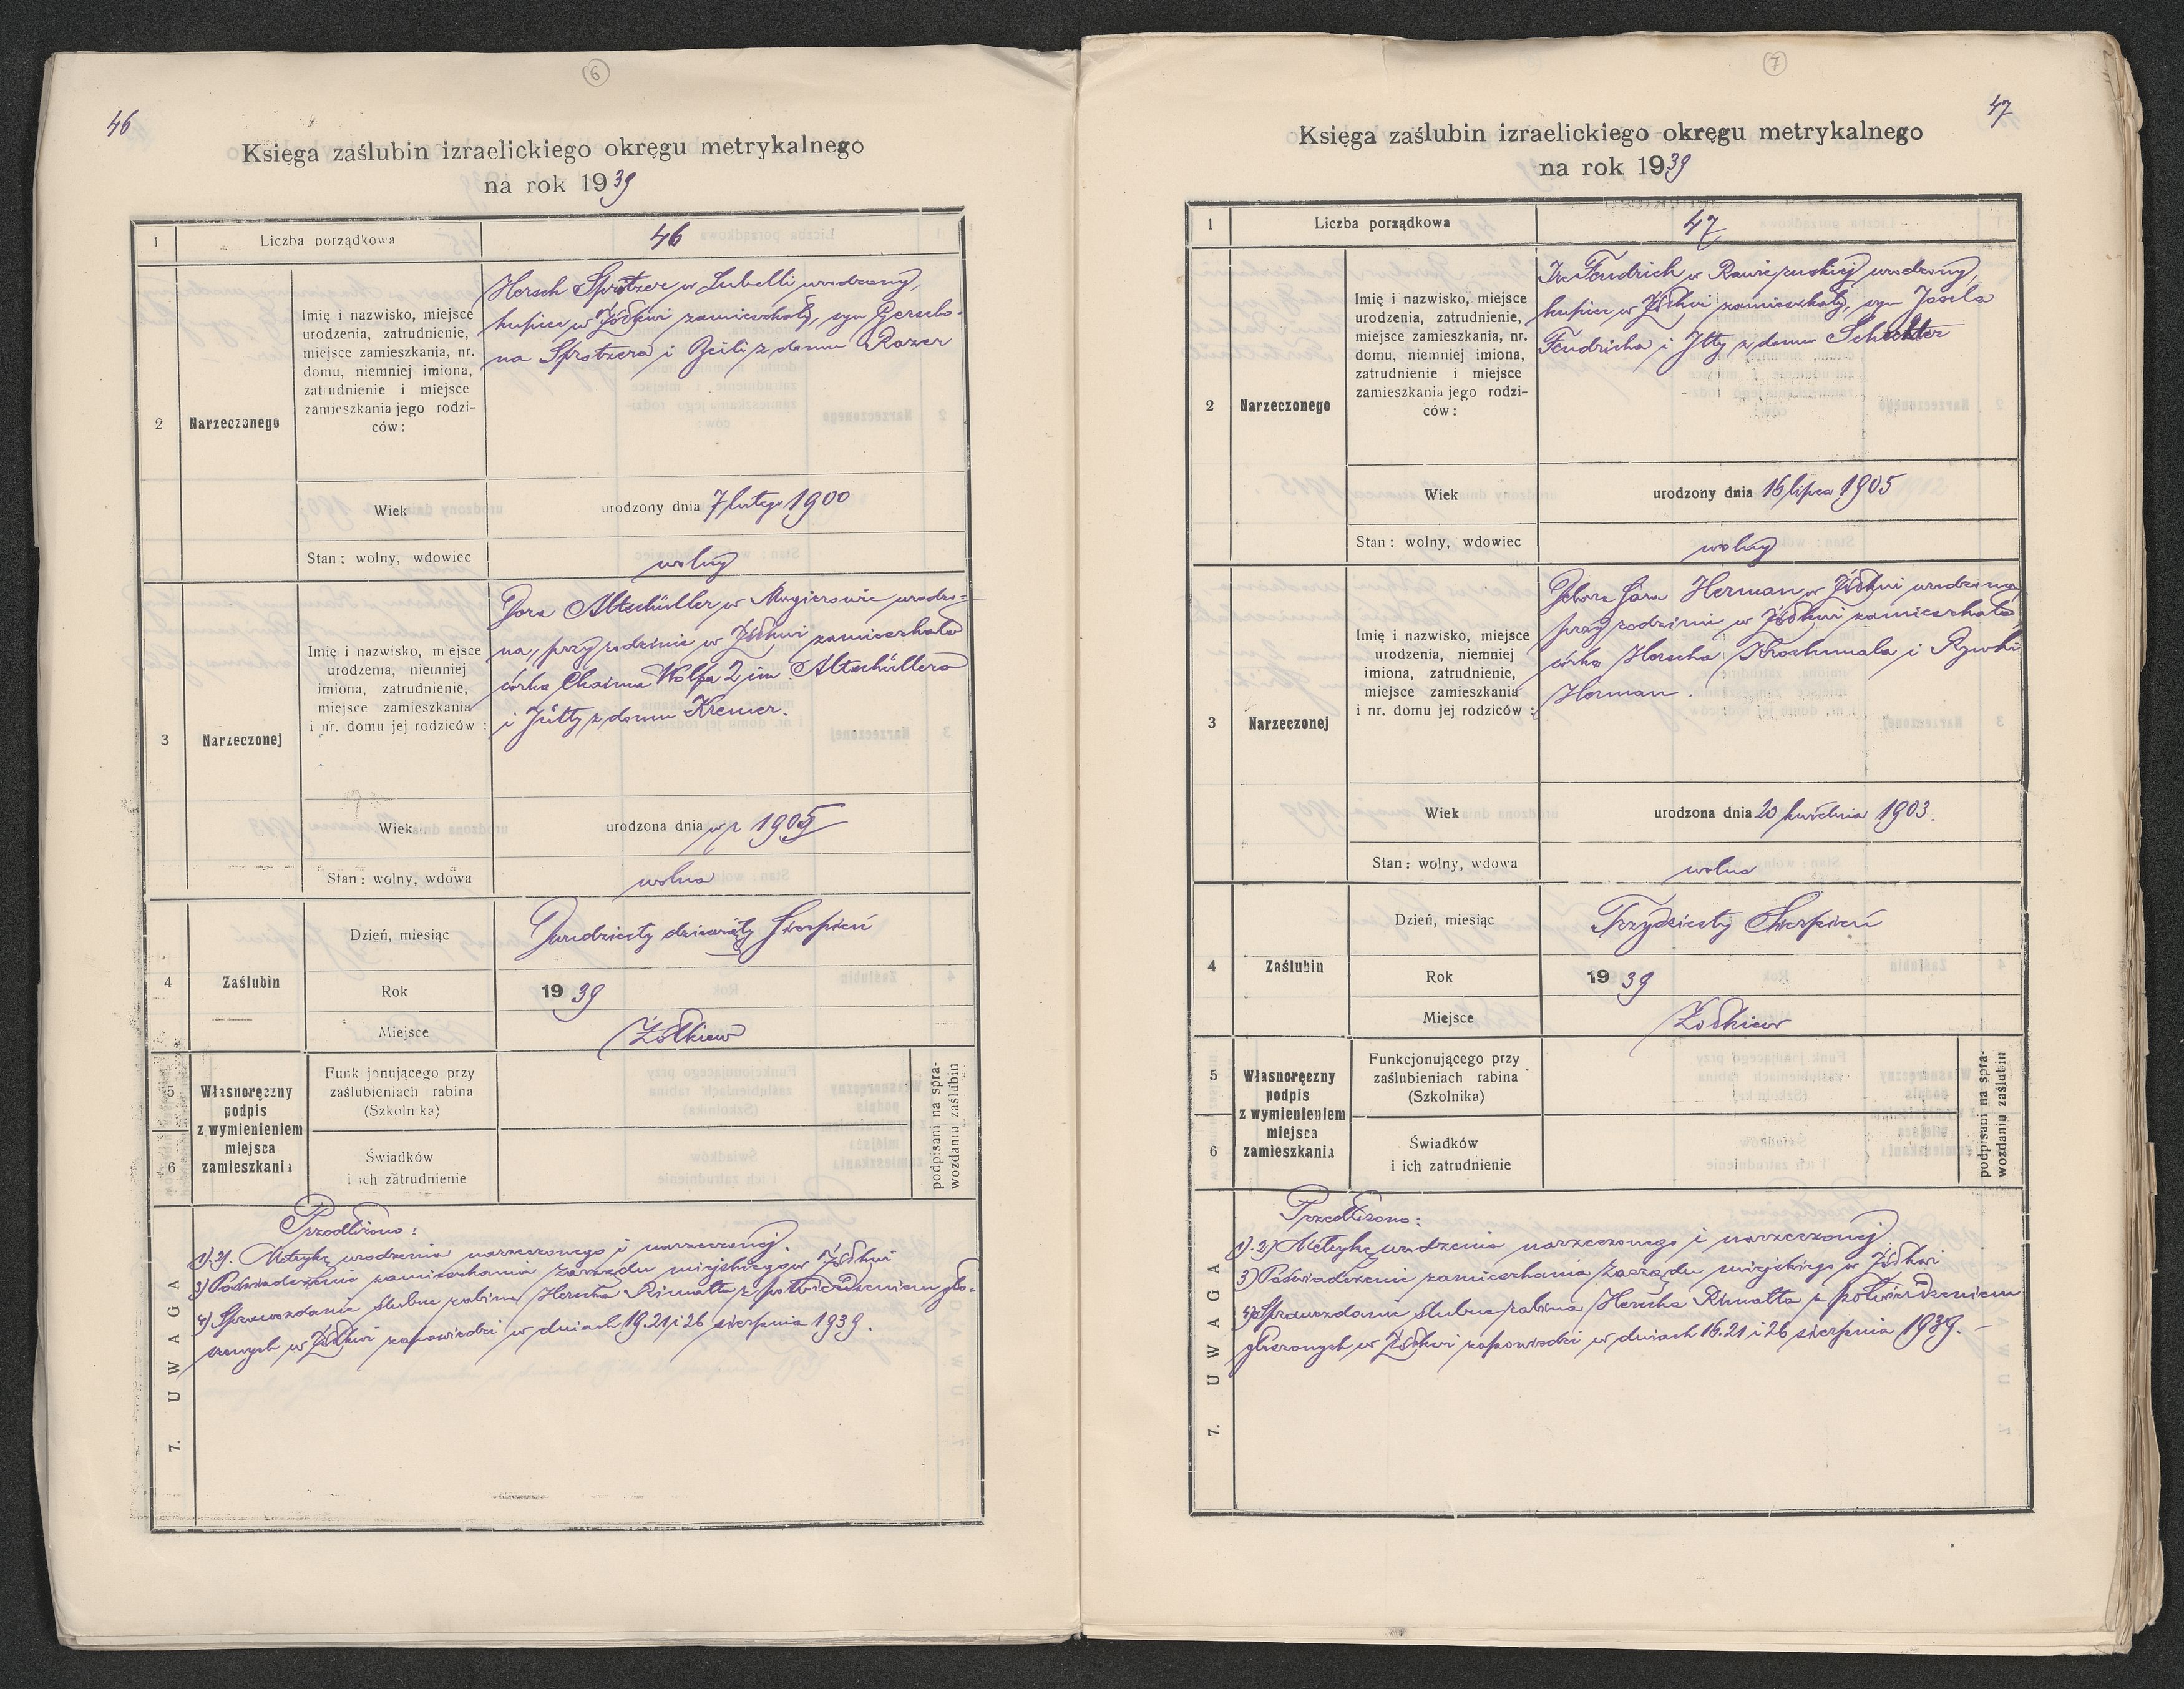 6
46
Księga zaślubin izraelickiego okręgu metrykalnego
na rok 1939
1
Liczba porządkowa
46
2
Narzeczonego
Imię i nazwisko, miejsce
urodzenia, zatrudnienie,
miejsce zamieszkania, nr.
domu, niemniej imiona,
zatrudnienie i miejsce
zamieszkania jego rodzi-
ców:
Hersch Sprotzer w Lubelli urodzony,
kupiec w Żółkwi zamieszkały, syn Gerscho-
na Sprotzera i Beili z domu Razer
Wiek
urodzony dnia 7 lutego 1900
Stan: wolny, wdowiec
wolny
3
Narzeczonej
Imię i nazwisko, miejsce
urodzenia, niemniej
imiona, zatrudnienie,
miejsce zamieszkania
i nr. domu jej rodziców:
Dora Altschüller w Magierowie urodzo-
na, przy rodzinie w Żółkwi zamieszkała
córka Chaima Wolfa 2 im. Altschüllera
i Jütty z domu Kremer.
Wiek
urodzona dnia w r 1905
Stan: wolny, wdowa
wolna
4
Zaślubin
Dzień, miesiąc
Dwudziesty dziewiąty Sierpień
Rok
1939
Miejsce
Żółkiew
5
6
Własnoręczny
podpis
z wymienieniem
miejsca
zamieszkania
Funkcjonującego przy
zaślubieniach rabina
(Szkolnika)
Świadków
i ich zatrudnienie
podpisani na spra-
wozdaniu zaślubin
7. UWAGA
Przedłożono:
1).2). Metrykę urodzenia narzeczonego i narzeczonej.
3) Poświadczenie zamieszkania Zarządu miejskiego w Żółkwi
4) Sprawozdanie ślubne rabina Herscha Rimalta z potwierdzeniem gło-
szonych w Żółkwi zapowiedzi w dniach 19.21 i 26 sierpnia 1939.
7
47
Księga zaślubin izraelickiego okręgu metrykalnego
na rok 1939
1
Liczba porządkowa
47
2
Narzeczonego
Imię i nazwisko, miejsce
urodzenia, zatrudnienie,
miejsce zamieszkania, nr.
domu, niemniej imiona,
zatrudnienie i miejsce
zamieszkania jego rodzi-
ców:
Fendrich w Rawie ruskiej urodzony,
kupiec w Żółkwi zamieszkały, syn Josela
Fendricha i Itty z domu Schachter
Wiek
urodzony dnia 16 lipca 1905
Stan: wolny, wdowiec
wolny
3
Narzeczonej
Imię i nazwisko, miejsce
urodzenia, niemniej
imiona, zatrudnienie,
miejsce zamieszkania
i nr. domu jej rodziców:
Debora Sara Herman w Żółkwi urodzona
przy rodzinie w Żółkwi zamieszkała
córka Herscha Krochmala i Rywki
Herman.
Wiek
urodzona dnia 20 kwietnia 1903.
Stan: wolny, wdowa
wolna
4
Zaślubin
Dzień, miesiąc
Trzydziesty Sierpień
Rok
1939
Miejsce
Żółkiew
5
6
Własnoręczny
podpis
z wymienieniem
miejsca
zamieszkania
Funkcjonującego przy
zaślubieniach rabina
(Szkolnika)
Świadków
i ich zatrudnienie
podpisani na spra-
wozdaniu zaślubin
7. UWAGA
Przedłożono:
1).2) Metrykę urodzenia narzeczonego i narzeczonej
3) Poświadczenie zamieszkania Zarządu miejskiego w Żółkwi
4) Sprawozdanie ślubne rabina Herscha Rimalta z potwierdzeniem
głoszonych w Żółkwi zapowiedzi w dniach 16.21 i 26 sierpnia 1939.-